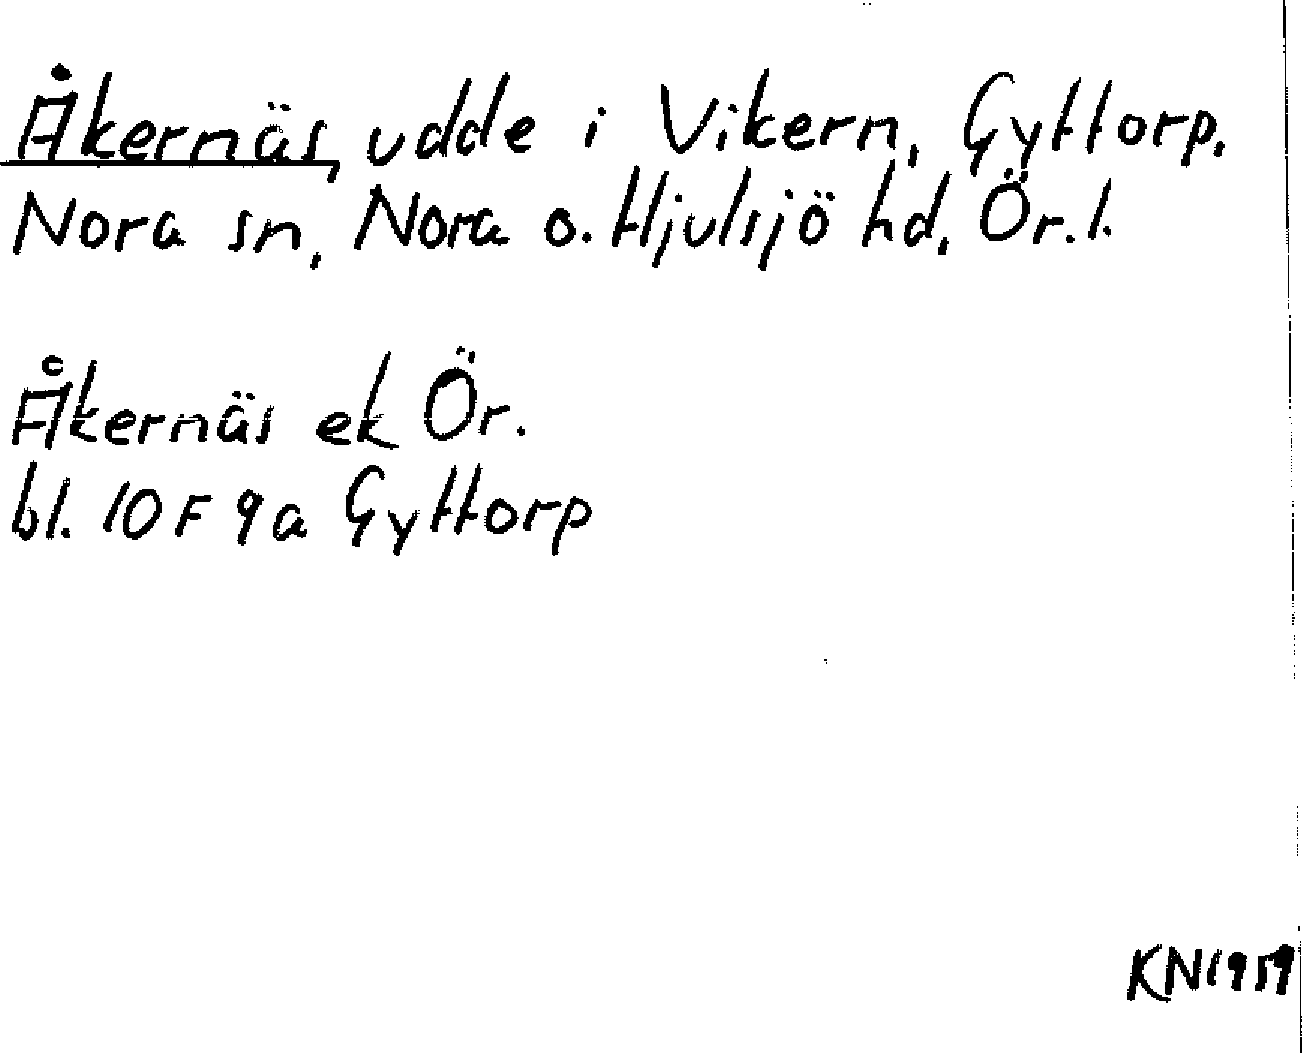 Åkernäs, udde i Vikern, Gyttorp,
Nora sn, Nora o. Hjulsjö hd, Ör. l.
Åkernäs ek Ör.
bl. 10 F 9a Gyttorp
KN1959